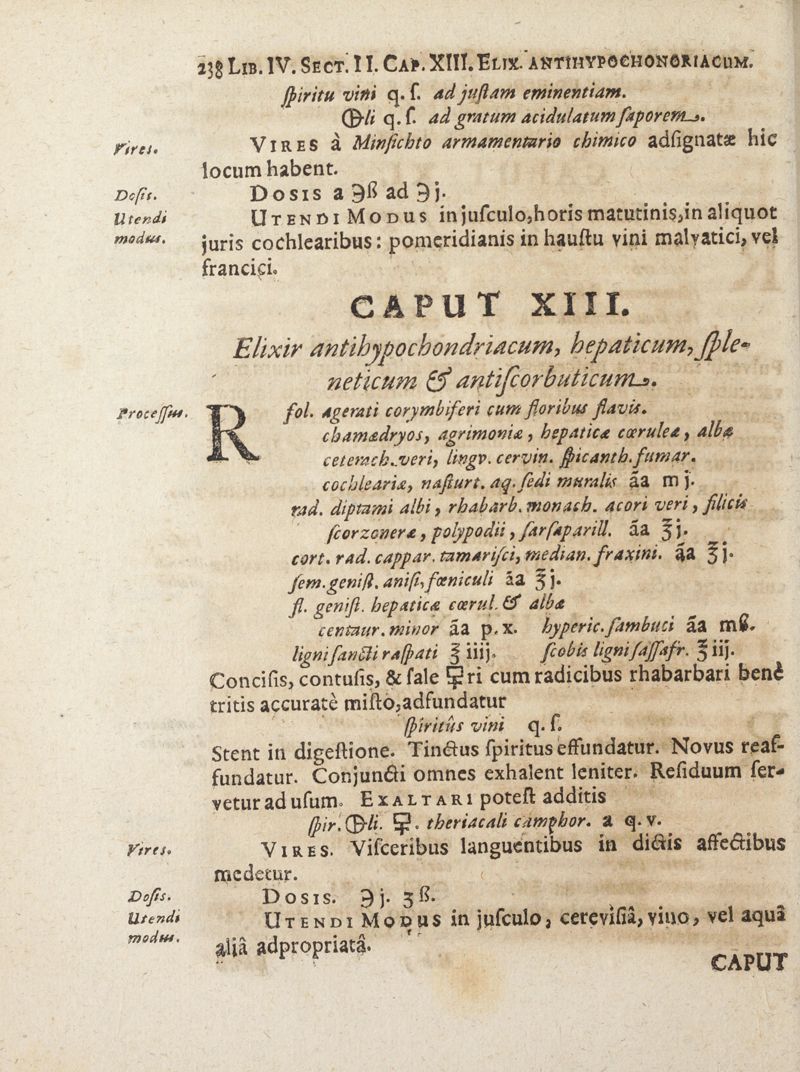 238 LIB. IV. SECT. II. CAP. XIII. ELIX. ANTIHYPOCHONDRIACUM.
ſpiritu vini q. ſ. ad juſtam eminentiam.
🜖li q. ſ. ad gratum acidulatum ſaporem.
Vires.
VIRES à Minſichto armamentario chimico adſignatæ hic
locum habent.
Doſis.
DOSIS a ℈ß ad ℈j.
Utendi
modus.
UTENDI MODUS in juſculo, horis matutinis, in aliquot
juris cochlearibus: pomeridianis in hauſtu vini malvatici, vel
francici.
CAPUT XIII.
Elixir antihypochondriacum, hepaticum, ſple-
neticum & antiſcorbuticum.
Proceſſus.
R fol. agerati corymbiferi cum floribus flavis.
chamædryos, agrimoniæ, hepaticæ cœruleæ, albæ
ceterach. veri, lingv. cervin. ſpicanth. fumar.
cochleariæ, naſturt. aq. ſedi muralis āa m j.
rad. diptami albi, rhabarb. monach. acori veri, filicis
ſcorzoneræ, polypodii, ſarſaparill. āa ℥j.
cort. rad. cappar. tamariſci, median. fraxini. āa ℥j.
ſem. geniſt. aniſi, fœniculi āa ℥j.
fl. geniſt. hepaticæ cœrul. & albæ
centaur. minor āa p. x. hyperic. ſambuci āa mß.
ligni ſancti raſpati ℥iiij. ſcobis ligni ſaſſafr. ℥iij.
Conciſis, contuſis, & ſale 🜿ri cum radicibus rhabarbari benè
tritis accuratè miſto, adfundatur
ſpiritûs vini q. ſ.
Stent in digeſtione. Tinctus ſpiritus effundatur. Novus reaf-
fundatur. Conjuncti omnes exhalent leniter. Reſiduum ſer-
vetur ad uſum. EXALTARI poteſt additis
ſpir. 🜖li. 🜿. theriacali camphor. a q. v.
Vires.
VIRES. Viſceribus languentibus in dictis affectibus
medetur.
Doſis.
DOSIS. ℈j. ʒß.
Utendi
modus.
UTENDI MODUS in juſculo, cereviſiâ, vino, vel aquâ
aliâ adpropriatâ.
CAPUT